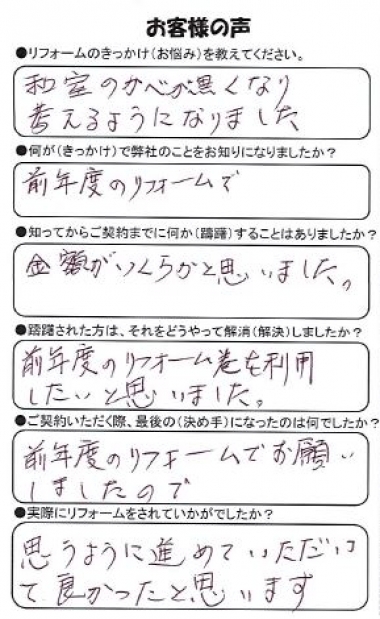 お客様の声
●リフォームのきっかけ(お悩み)を教えてください。
和室のかべが黒くなり
考えるようになりました
●何が(きっかけ)で弊社のことをお知りになりましたか？
前年度のリフォームで
●知ってからご契約までに何か(躊躇)することはありましたか？
金額がいくらかと思いました。
●躊躇された方は、それをどうやって解消(解決)しましたか？
前年度のリフォーム巻を利用
したいと思いました。
●ご契約いただく際、最後の(決め手)になったのは何でしたか？
前年度のリフォームでお願い
しましたので
●実際にリフォームをされていかがでしたか？
思うように進めていただい
て良かったと思います